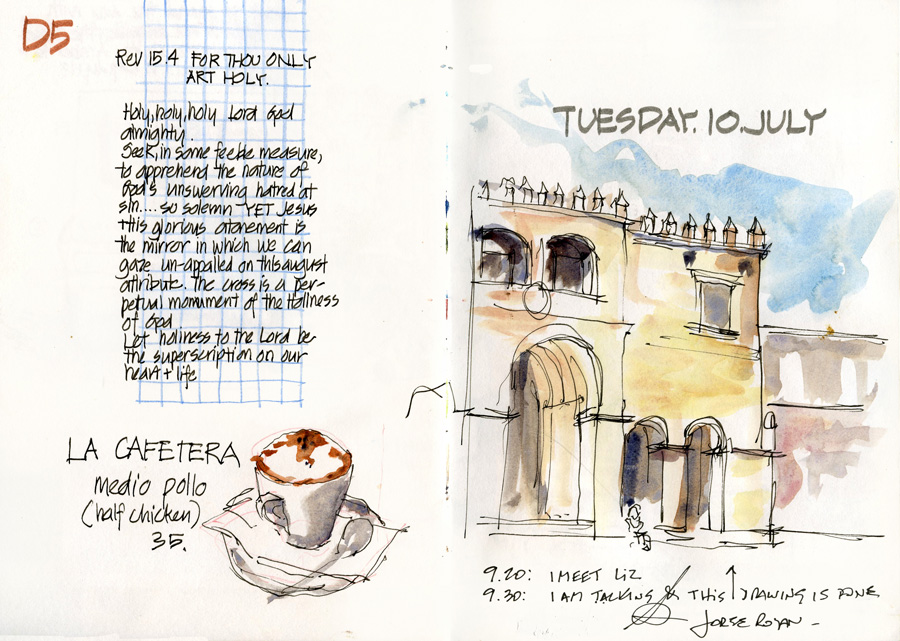 D5
Rev 15.4 FOR THOU ONLY
ART HOLY.
Holy, holy, holy Lord God
almighty.
Seek, in some feeble measure,
to apprehend the nature of
God's unswerving hatred at
sin.... so solemn - YET Jesus
this glorious atonement is
the mirror in which we can
gaze un-appalled on this august
attribute. The cross is a per-
petual monument of the Holiness
of God.
Let holiness to the Lord be
the superscription on our
heart + life
LA CAFETERA
medio pollo
(half chicken)
35.
TUESDAY. 10. JULY
9.20: I MEET LIZ
9.30: I AM TALKING & THIS DRAWING IS DONE
JORGE ROYAN -